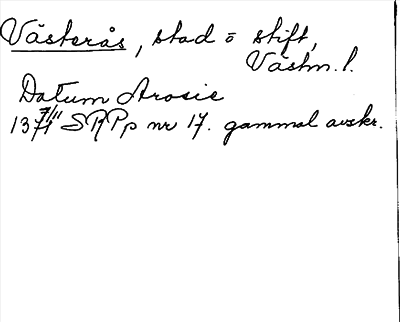 Västerås, stad o stift,
Västm. l.
Datum Arosie
1371 7/11 SRPp nr 17. gammal avskr.